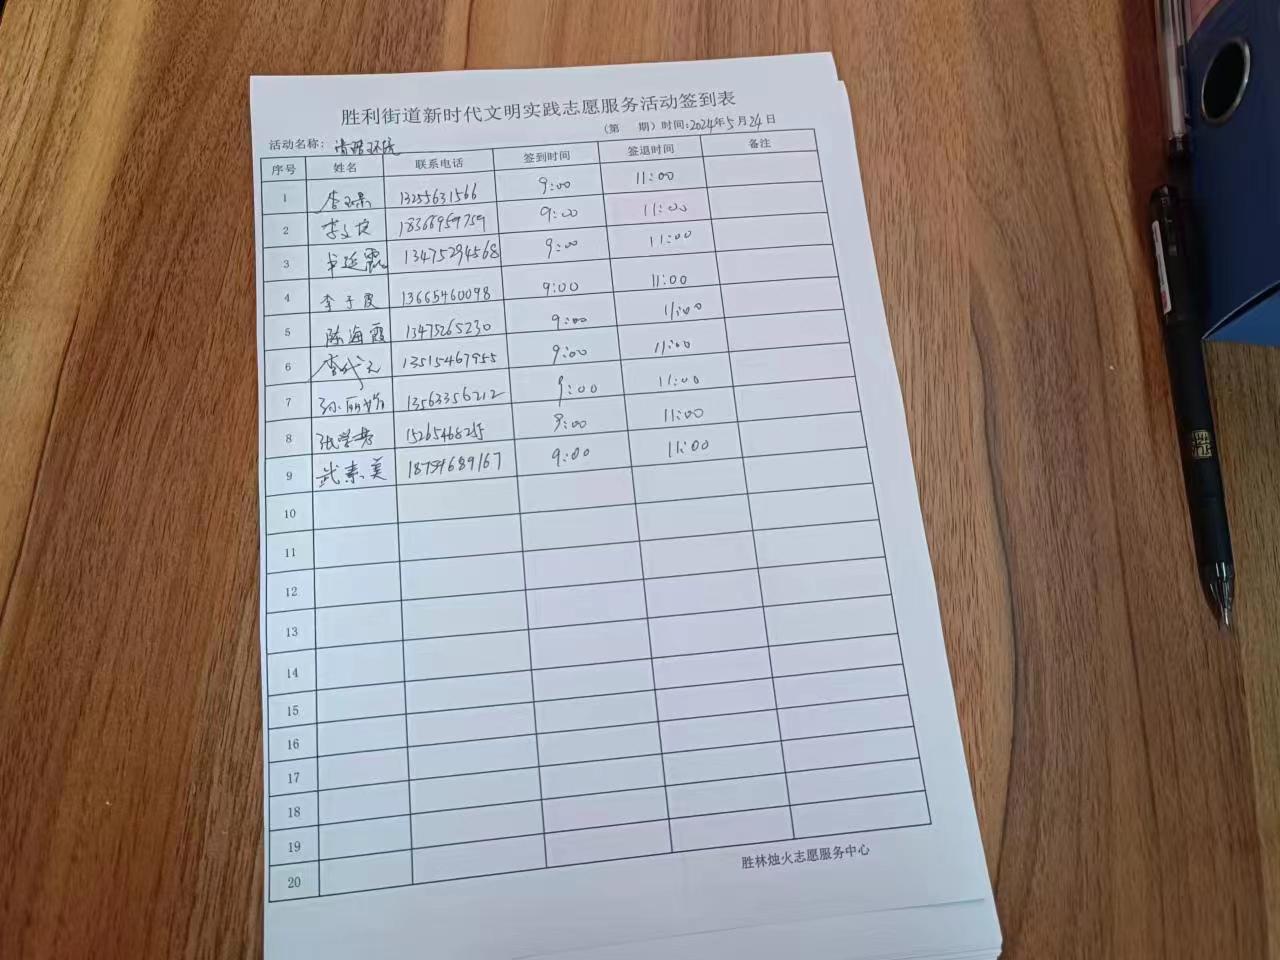 胜利街道新时代文明实践志愿服务活动签到表
(第 期) 时间:2024年5月24日
活动名称: 清踏环境
序号 姓名 联系电话 签到时间 签退时间 备注
1 13255631566 9:00 11:00
2 李文 18366959759 9:00 11:00
3 13475294568 9:00 11:00
4 李子霞 13665460098 9:00 11:00
5 陈海霞 13475265230 9:00 11:00
6 李代元 13515467955 9:00 11:00
7 孙丽 13563356212 9:00 11:00
8 张学 9:00 11:00
9 武素美 9:00 11:00
10
11
12
13
14
15
16
17
18
19
20
胜林烛火志愿服务中心